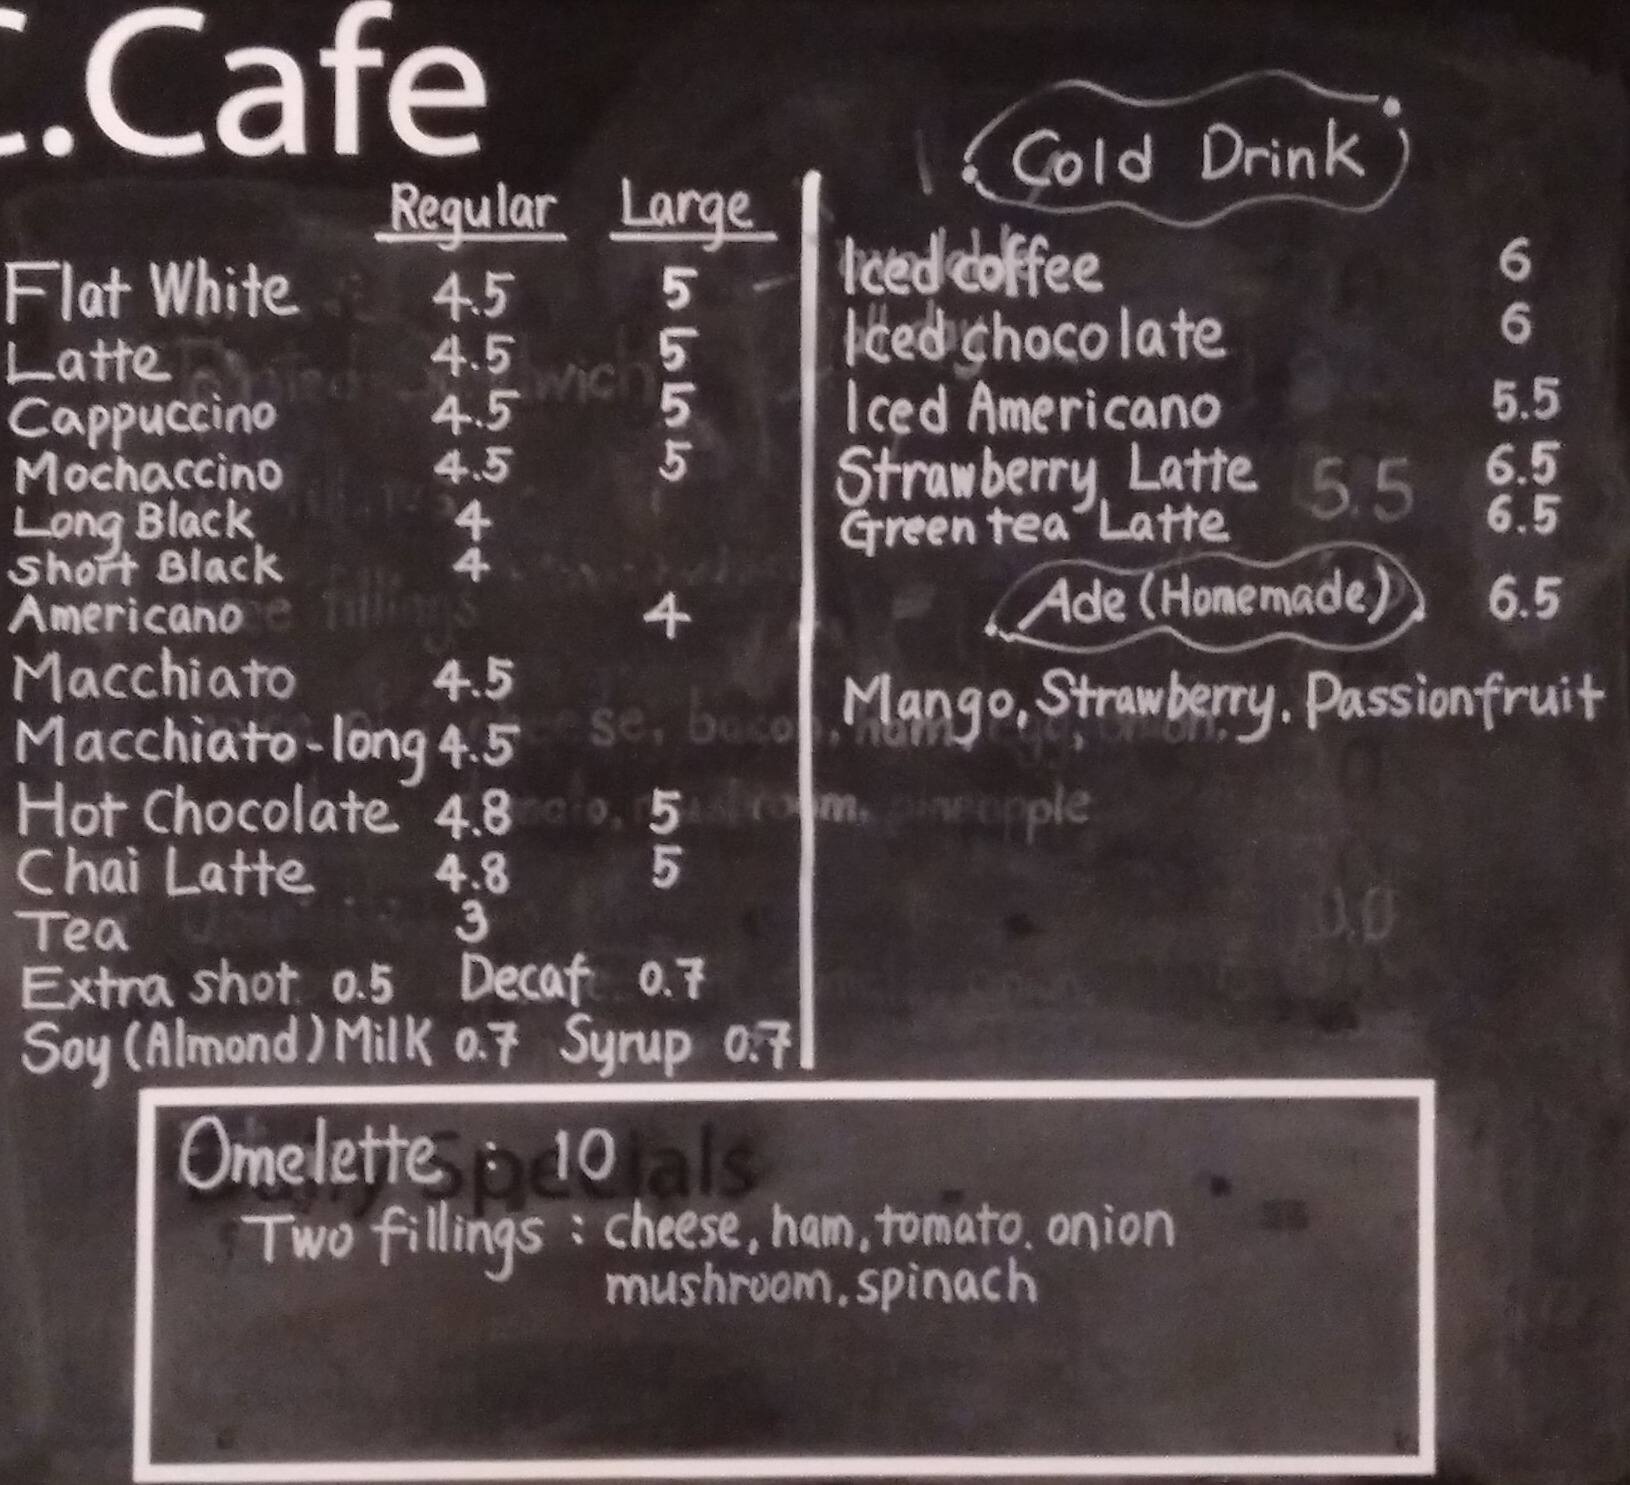 C.Cafe
Regular Large
Flat White 4.5 5
Latte 4.5 5
Cappuccino 4.5 5
Mochaccino 4.5 5
Long Black 4
Short Black 4
Americano 4
Macchiato 4.5
Macchiato-long 4.5
Hot Chocolate 4.8 5
Chai Latte 4.8 5
Tea 3
Extra shot 0.5 Decaf 0.7
Soy (Almond) Milk 0.7 Syrup 0.7
Cold Drink
Iced coffee 6
Iced chocolate 6
Iced Americano 5.5
Strawberry Latte 6.5
Green tea Latte 5.5 6.5
Ade (Honemade) 6.5
Mango, Strawberry. Passionfruit
Omelette : 10
Daily Specials
Two fillings : cheese, ham, tomato. onion
mushroom. spinach